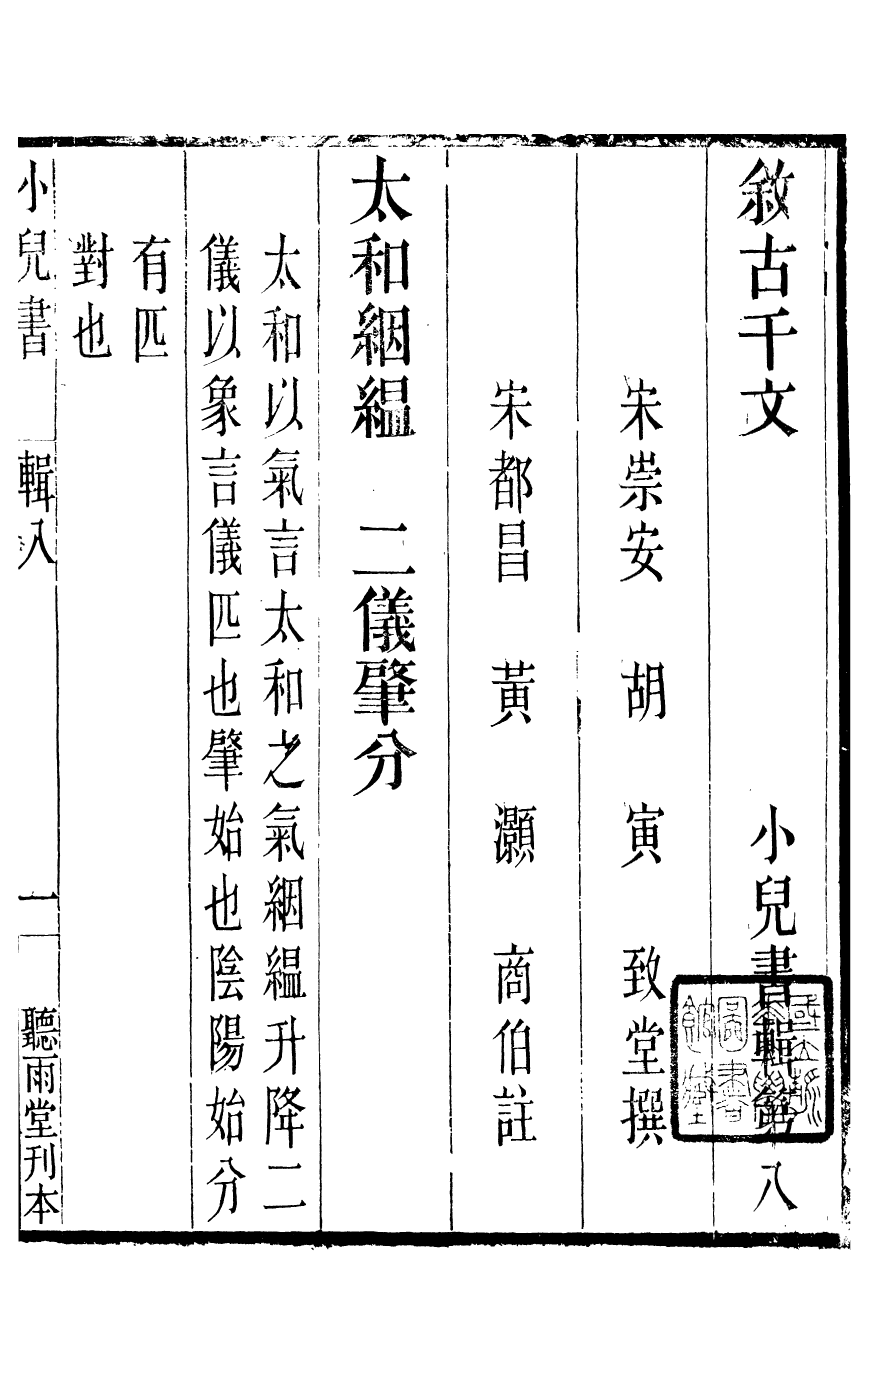 敘古千文 小兒書輯第八
宋崇安 胡 寅 致堂撰
宋都昌 黃 灝 商伯註
太和絪縕 二儀肇分
太和以氣言太和之氣絪縕升降二
儀以象言儀匹也肇始也陰陽始分
有匹
對也
小兒書 輯八 一 聽雨堂刊本